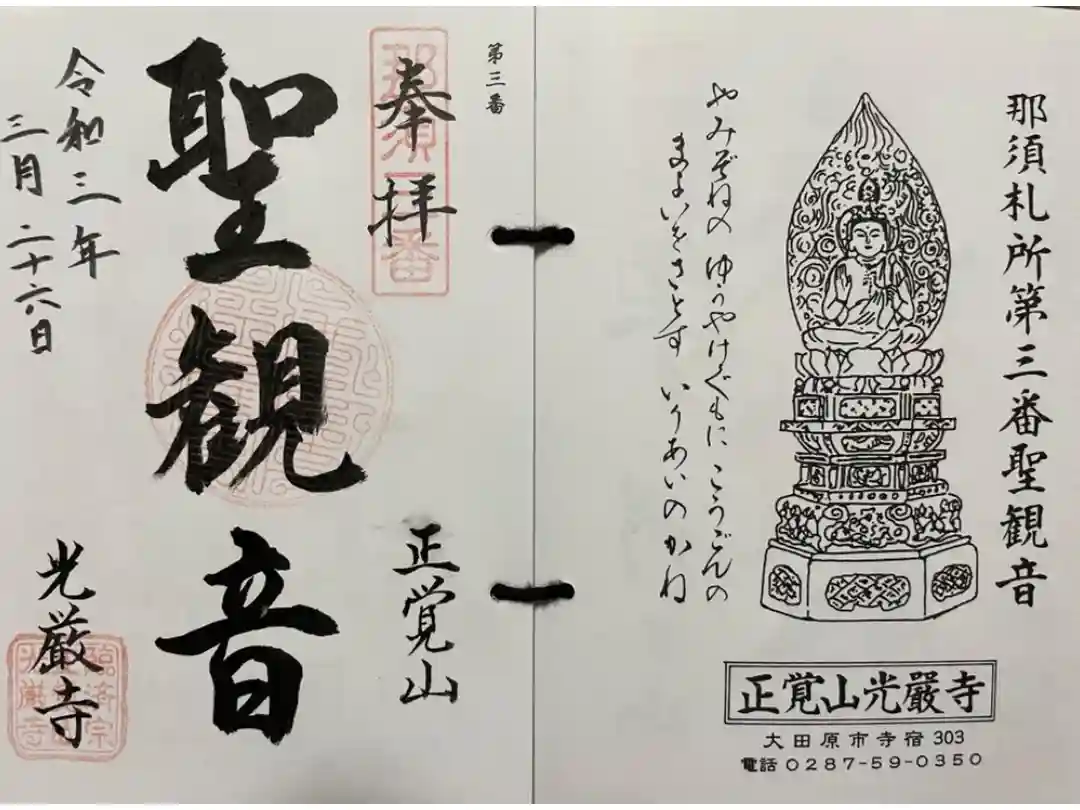 那須札所第三番聖観音
やみぞねの ゆうやけぐもに こうごんの
まよいをさとす いりあいのかね
正覚山光厳寺
大田原市寺宿 303
電話 0287-59-0350
第三番
奉拝
那須三番
正覚山
聖観音
令和三年
三月二十六日
光厳寺